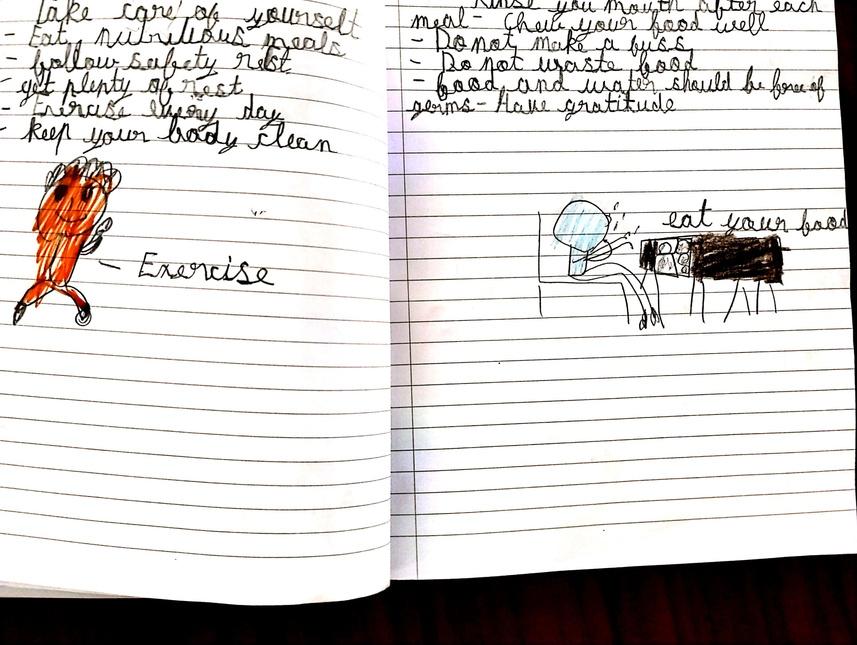 Take care of yourself
- Eat nutritious meals
- follow safety rest
- get plenty of rest
- Exercise every day
- keep your body clean
Exercise
Rinse you mouth after each
meal - Chew your food well
- Do not make a fuss
- Do not waste food
- food and water should be free of
germs - Have gratitude
eat your food